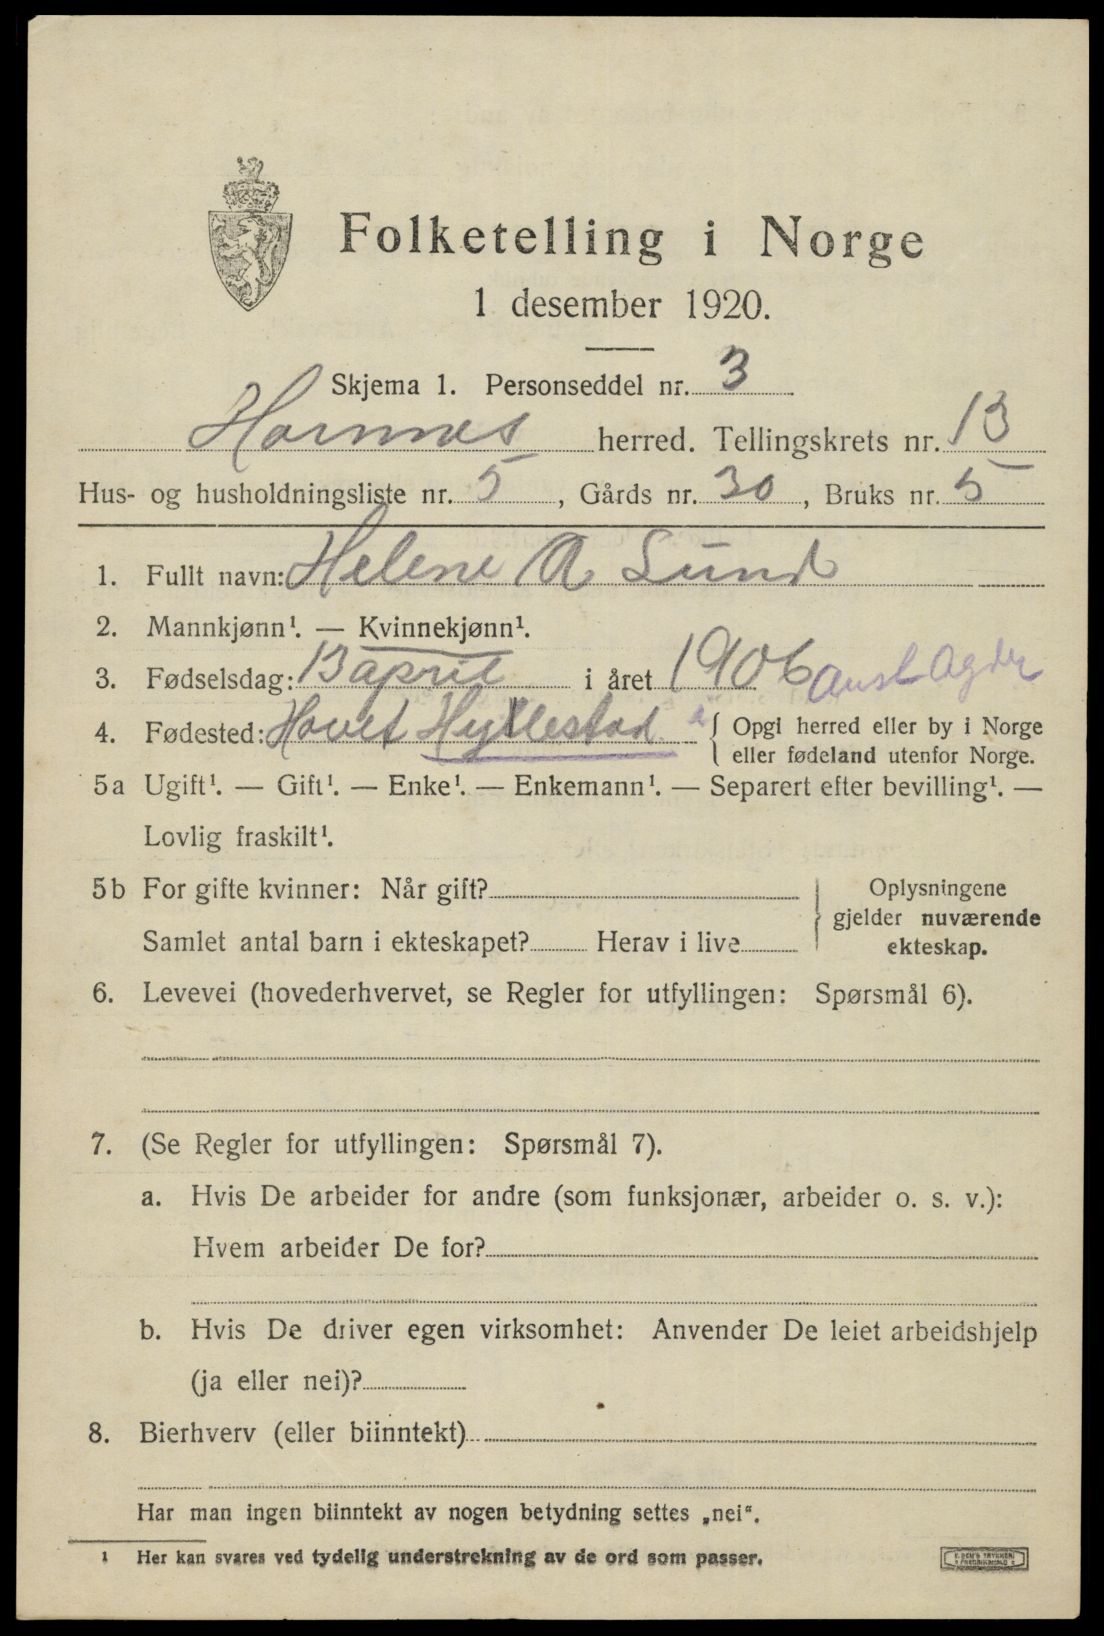 Folketelling i Norge
1 desember 1920.
Skjema 1. Personseddel nr. 3
Hornnes herred. Tellingskrets nr. 13
Hus- og husholdningsliste nr. 5, Gårds nr. 30, Bruks nr. 5
1. Fullt navn: Helene A Lund
2. Mannkjønn¹. — Kvinnekjønn¹.
3. Fødselsdag: 13 april i året 1906 Aust Agder
4. Fødested: Hovet Hyllestad { Opgi herred eller by i Norge
eller fødeland utenfor Norge.
5a Ugift¹. — Gift¹. — Enke¹. — Enkemann¹. — Separert efter bevilling¹. —
Lovlig fraskilt¹.
5b For gifte kvinner: Når gift?
Samlet antal barn i ekteskapet? Herav i live
} Oplysningene
gjelder nuværende
ekteskap.
6. Levevei (hovederhvervet, se Regler for utfyllingen: Spørsmål 6).
7. (Se Regler for utfyllingen: Spørsmål 7).
a. Hvis De arbeider for andre (som funksjonær, arbeider o. s. v.):
Hvem arbeider De for?
b. Hvis De driver egen virksomhet: Anvender De leiet arbeidshjelp
(ja eller nei)?
8. Bierhverv (eller biinntekt)
Har man ingen biinntekt av nogen betydning settes „nei“.
¹ Her kan svares ved tydelig understrekning av de ord som passer.